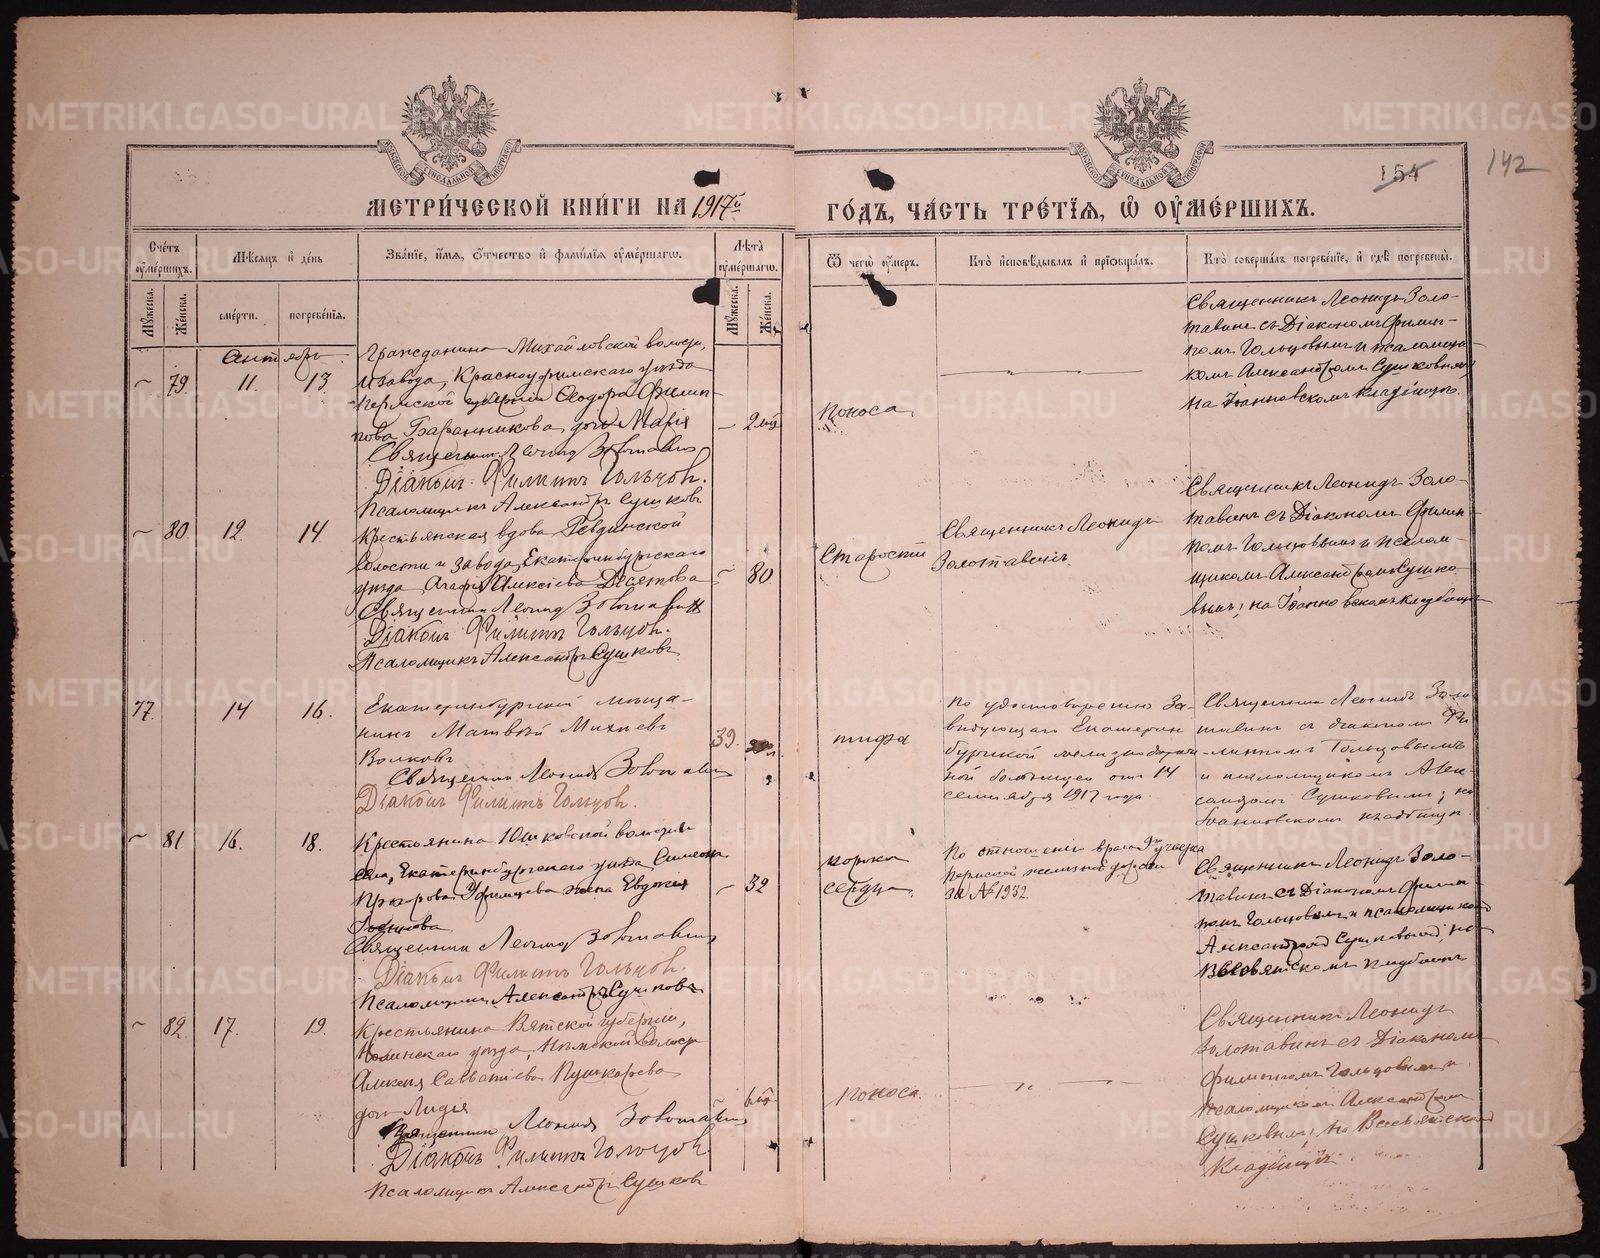 МЕТРИ́ЧЕСКОЙ КНИ́ГИ НА 1917й
ГО́ДЪ, ЧА́СТЬ ТРЕ́ТІѦ, Ѡ ОУМЕ́РШИХЪ.
154
142
Счётъ оумершихъ.
Мѣсяцъ и день
Званіе, имя, отчество и фамилія оумершаго.
Лѣта оумершаго.
Ѿ чегѡ оумеръ.
Кто исповѣдывалъ и пріобщалъ.
Кто совершалъ погребеніе, и гдѣ погребены.
Мужеска.
Женска.
смерти.
погребенія.
Мужеска.
Женска.
Сентябрь.
79
11.
13.
Гражданина Михайловской волости,
и завода, Красноуфимскаго уѣзда
Пермской губерніи Ѳеодора Филип-
пова Баранникова дочь Марія
Священникъ Леонидъ Золотавинъ
Діаконъ Филиппъ Гольцовъ.
Псаломщикъ Александръ Сушковъ
2 мѣс.
Поноса
Священникъ Леонидъ Золо-
тавинъ съ Діакономъ Филип-
помъ Гольцовымъ и псаломщи-
комъ Александромъ Сушковымъ,
на Іоанновскомъ кладбищѣ.
80
12.
14.
Крестьянская вдова Ревдинской
волости и завода Екатеринбургскаго
уѣзда Агафія Алексіева
Священникъ Леонидъ Золотавинъ
Діаконъ Филиппъ Гольцовъ.
Псаломщикъ Александръ Сушковъ
80
Старости
Священникъ Леонидъ
Золотавинъ
Священникъ Леонидъ Золо-
тавинъ съ Діакономъ Филип-
помъ Гольцовымъ и псалом-
щикомъ Александромъ Сушко-
вымъ; на Іоанновскомъ кладбищѣ
77
14
16.
Екатеринбургскій мѣща-
нинъ Матвѣй Михеевъ
Волковъ
Священникъ Леонидъ Золотавинъ
Діаконъ Филиппъ Гольцовъ.
39.
тифа
По удостовѣренію За-
вѣдующаго Екатерин
бургской
ной больницей отъ 14
сентября 1917 года.
Священникъ Леонидъ Золо
тавинъ съ діакономъ Фи
липпомъ Гольцовымъ
и псаломщикомъ Алек-
сандромъ Сушковымъ; на
Іоанновскомъ кладбищѣ.
81
16.
18.
Крестьянина Юшковской волости
села, Екатеринбургскаго уѣзда Симеона
Прохорова жена Евдокія
Священникъ Леонидъ Золотавинъ
Діаконъ Филиппъ Гольцовъ.
Псаломщикъ Александръ Сушковъ
32
порока
сердца
По отношенію врача 9го участка
Пермской желѣзной дороги
за № 1932.
Священникъ Леонидъ Золо-
тавинъ съ Діакономъ Филип-
помъ Гольцовымъ и псаломщикомъ
Александромъ Сушковымъ, на
Всесвятскомъ кладбищѣ
82
17.
19.
Крестьянина Вятской губерніи,
Нолинскаго уѣзда, Нѣмской волости
Алексія Савватіева Пушкарева
дочь Лидія
Священникъ Леонидъ Золотавинъ
Діаконъ Филиппъ Гольцовъ
Псаломщикъ Александръ Сушковъ
6 мѣс.
Поноса.
Священникъ Леонидъ
Золотавинъ съ Діакономъ
Филиппомъ Гольцовымъ и
псаломщикомъ Александромъ
Сушковымъ; на Всесвятскомъ
Кладбищѣ
METRIKI.GASO-URAL.RU